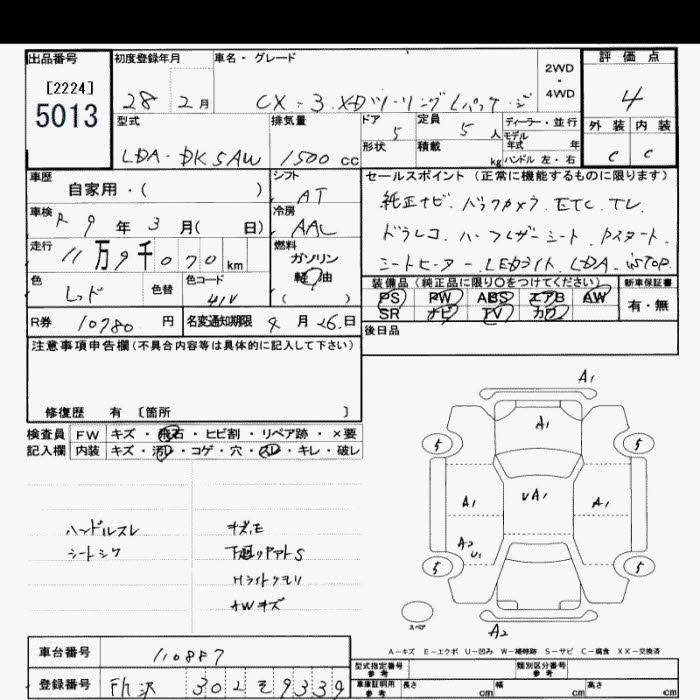 出品番号 初度登録年月 車名・グレード 2WD・4WD 評価点
[2224]
5013
28 2月 CX-3 XDツーリングLパッケージ 4
型式 排気量 ドア 5 定員 5人 ディーラー・並行 外装 内装
LDA-DK5AW 1500cc 形状 積載 kg モデル年式 年 ハンドル 左・右 C C
車歴 自家用・( ) シフト AT セールスポイント(正常に機能するものに限ります)
車検 R9年3月( 日) 冷房 AAC 純正ナビ.バックカメラ.ETC.TV.
走行 11万9千070km 燃料 ガソリン 軽油 ( ) ドラレコ.ハーフレザーシート.Pスタート.
シートヒーター.LEDライト.LDA.iSTOP.
色 レッド 色替 色コード 41V 装備品(純正品に限り○をつけてください) 新車保証書
PS PW ABS エアB AW 有・無
SR ナビ TV カワ
R券 10780円 名変通知期限 4月26日 後日品
注意事項申告欄(不具合内容等は具体的に記入して下さい)
修復歴 有 [箇所 ]
検査員 FW キズ・飛石・ヒビ割・リペア跡・×要
記入欄 内装 キズ・汚レ・コゲ・穴・スレ・キレ・破レ
A1
A1
5 5
A1 UA1 A1
A2
U1
5 5
スペア
A2
ハンドルスレ
シートシワ
キズ.E
下廻りサビS
Hライトクモリ
AWキズ
A-キズ E-エクボ U-凹み W-補修跡 S-サビ C-腐食 XX-交換済
車台番号 110887 型式指定番号 参考 類別区分番号 参考
登録番号 302 そ 9339 車庫証明用 参考 長さ cm 幅 cm 高さ cm